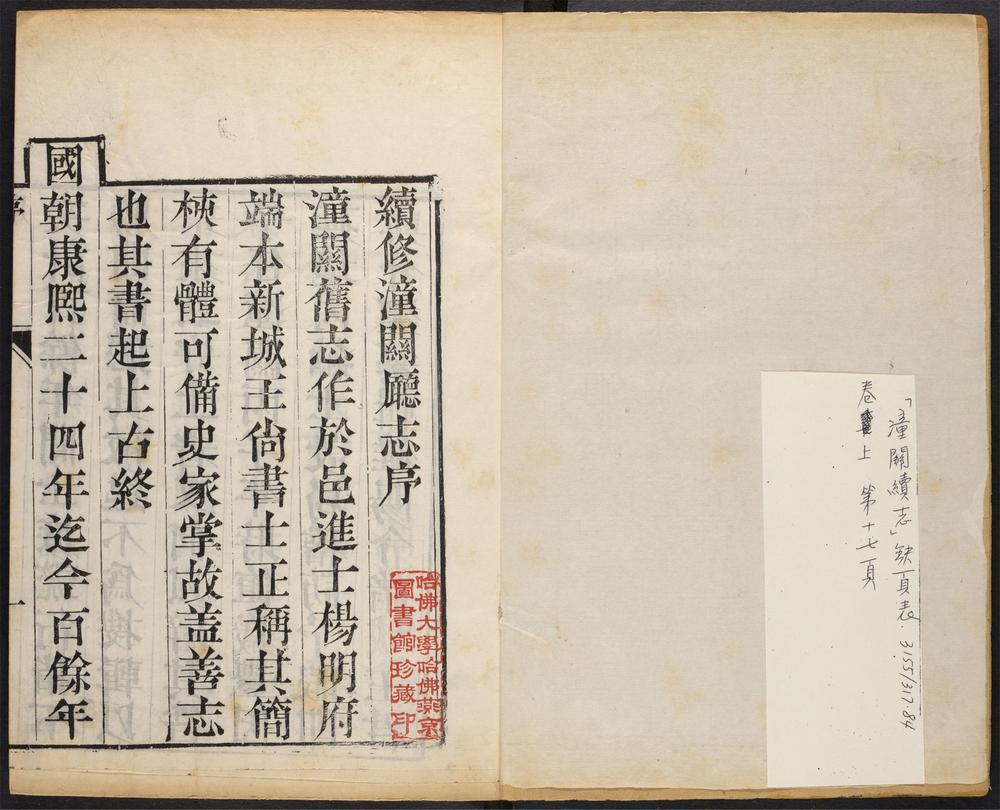 「潼關續志」缺頁表. 3155/317.84
卷上 第十七頁
續修潼關廳志序
潼關舊志作於邑進士楊明府
端本新城王尙書士正稱其簡
梜有體可備史家掌故盖善志
也其書起上古終
國朝康熙二十四年迄今百餘年
哈佛大學哈佛燕京
圖書館珍藏印
一